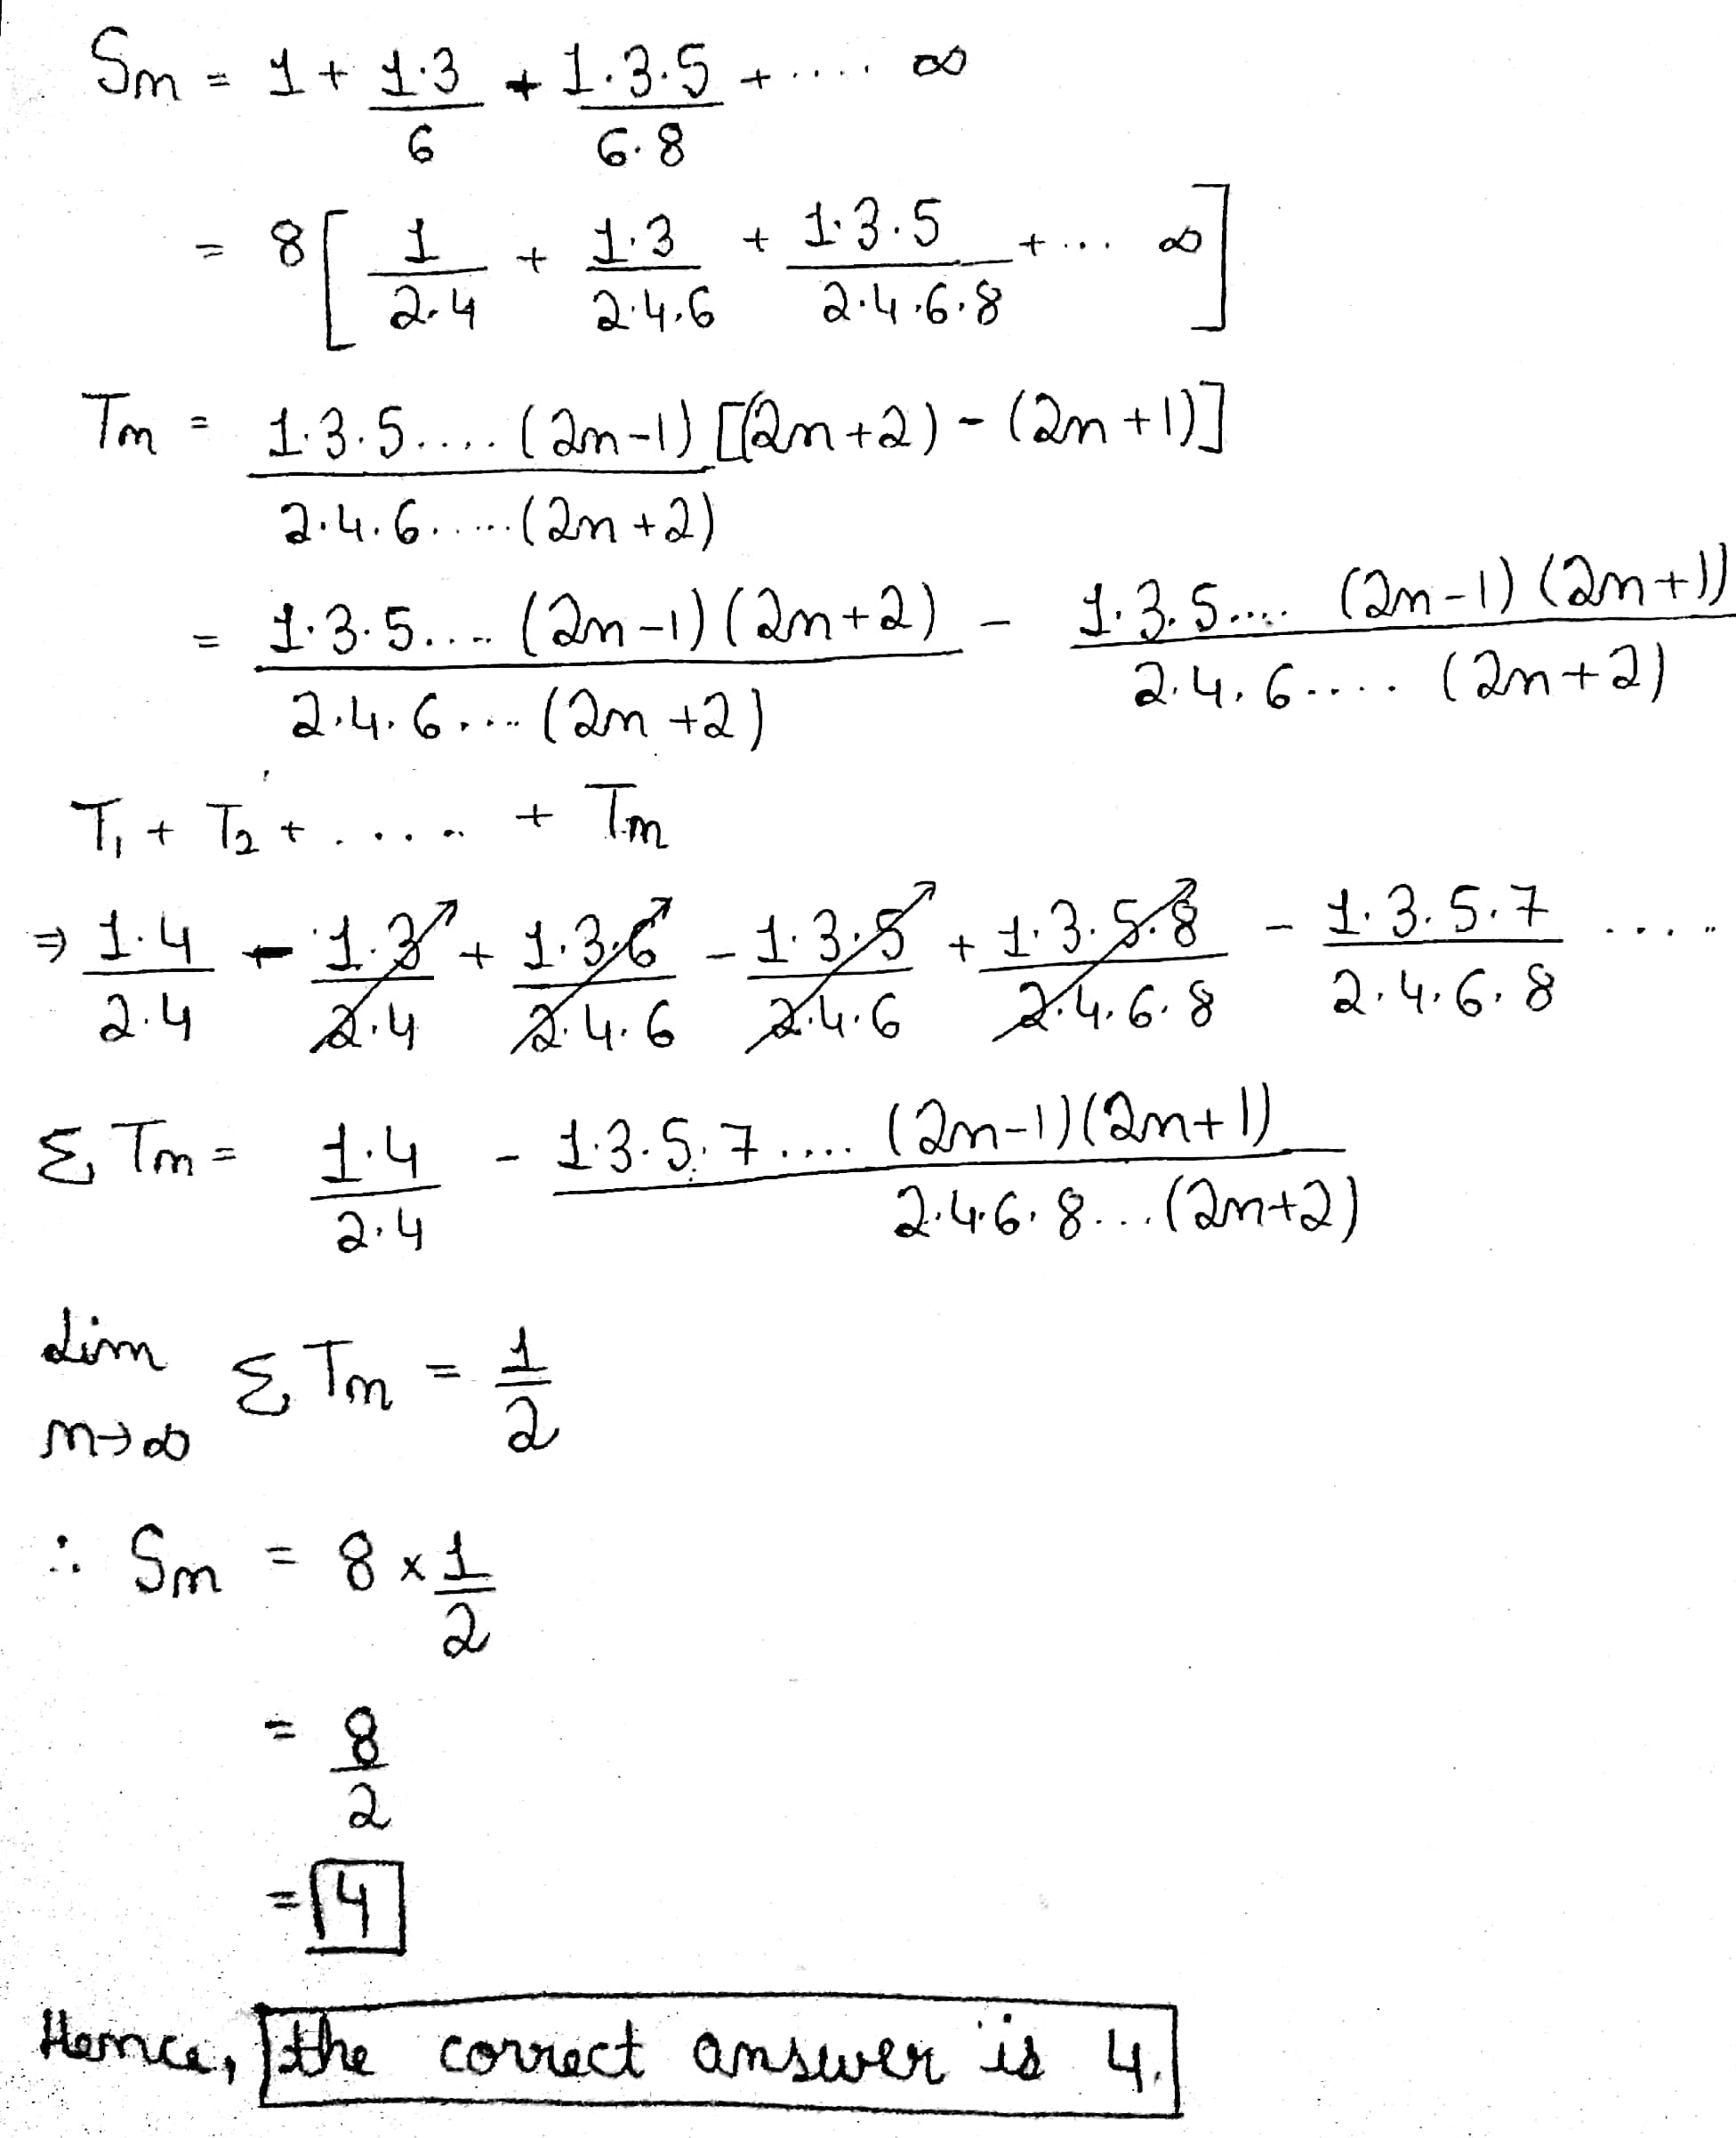 Sn = 1 + 1·3/6 + 1·3·5/6·8 + ..... ∞
= 8[1/2·4 + 1·3/2·4·6 + 1·3·5/2·4·6·8 + ... ∞]
Tn = 1·3·5....(2n-1)[(2n+2)-(2n+1)]/2·4·6.....(2n+2)
= 1·3·5....(2n-1)(2n+2)/2·4·6....(2n+2) - 1·3·5....(2n-1)(2n+1)/2·4·6....(2n+2)
T1 + T2 + ..... + Tn
⇒ 1·4/2·4 - 1·3/2·4 + 1·3·6/2·4·6 - 1·3·5/2·4·6 + 1·3·5·8/2·4·6·8 - 1·3·5·7/2·4·6·8 ....
Σ Tn = 1·4/2·4 - 1·3·5·7....(2n-1)(2n+1)/2·4·6·8...(2n+2)
Lim n→∞ Σ Tn = 1/2
∴ Sn = 8 × 1/2
= 8/2
= 4
Hence, the correct answer is 4.